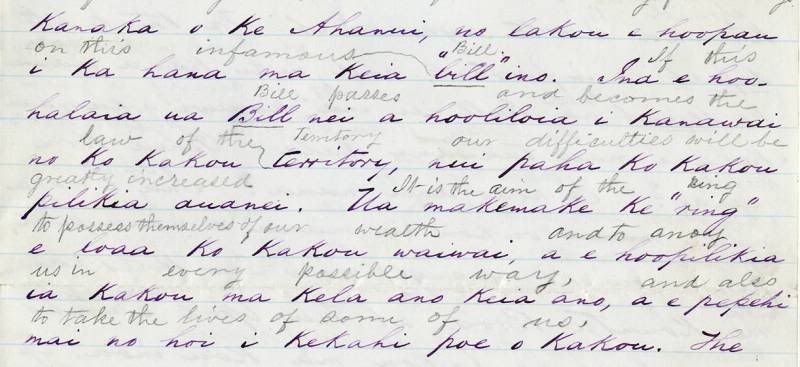 Kanaka o Ke Ahanui, no lakou e hoopau
on this infamous Bill. If this
i ka hana ma Keia "bill" ino. Ina e hoo-
Bill passes and becomes the
halaia ua Bill nei a hooliloia i Kanawai
law of the Territory our difficulties will be
no Ko Kakou Territory, nui paha Ko Kakou
greatly increased It is the aim of the ring
pilikia auanei. Ua makemake Ke "ring"
to possess themselves of our wealth and to anoy
e loaa Ko Kakou waiwai, a e hoopilikia
us in every possible way, and also
ia Kakou ma Kela ano Keia ano, a e pepehi
to take the lives of some of us,
mai no hoi i Kekahi poe o Kakou. The